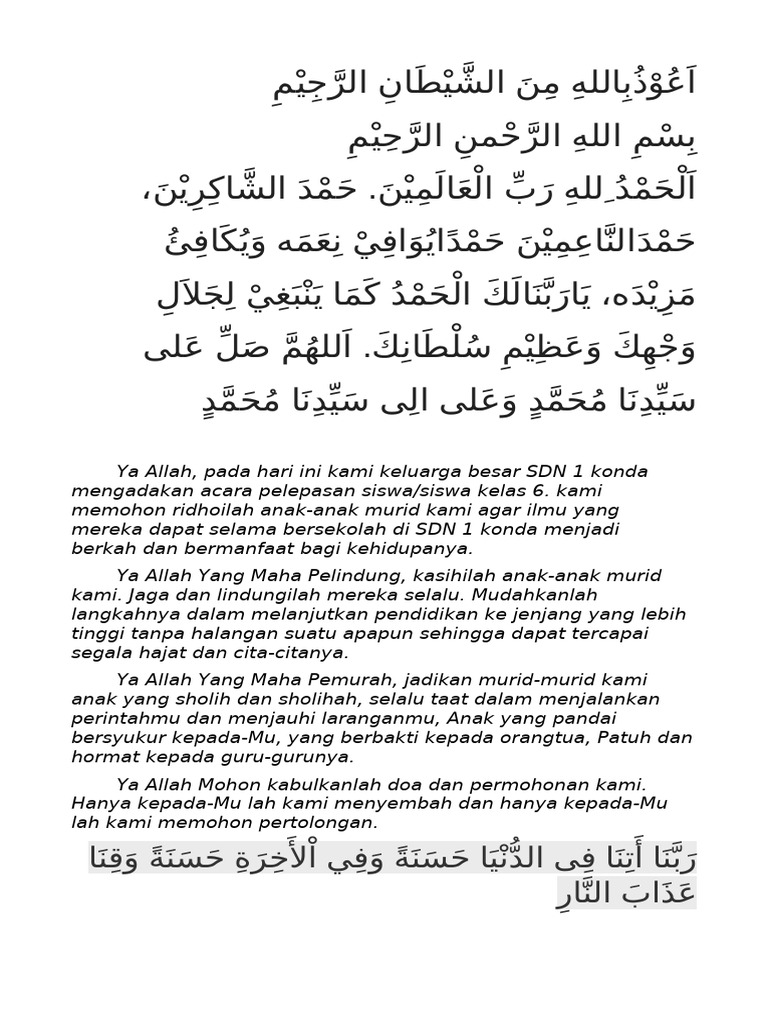 اَعُوْذُبِاللهِ مِنَ الشَّيْطَانِ الرَّجِيْمِ
بِسْمِ اللهِ الرَّحْمنِ الرَّحِيْمِ
اَلْحَمْدُ ِللهِ رَبِّ الْعَالَمِيْنَ. حَمْدَ الشَّاكِرِيْنَ،
حَمْدَالنَّاعِمِيْنَ حَمْدًايُوَافِيْ نِعَمَه وَيُكَافِئُ
مَزِيْدَه، يَارَبَّنَالَكَ الْحَمْدُ كَمَا يَنْبَغِيْ لِجَلاَلِ
وَجْهِكَ وَعَظِيْمِ سُلْطَانِكَ. اَللهُمَّ صَلِّ عَلى
سَيِّدِنَا مُحَمَّدٍ وَعَلى الِى سَيِّدِنَا مُحَمَّدٍ
Ya Allah, pada hari ini kami keluarga besar SDN 1 konda
mengadakan acara pelepasan siswa/siswa kelas 6. kami
memohon ridhoilah anak-anak murid kami agar ilmu yang
mereka dapat selama bersekolah di SDN 1 konda menjadi
berkah dan bermanfaat bagi kehidupanya.
Ya Allah Yang Maha Pelindung, kasihilah anak-anak murid
kami. Jaga dan lindungilah mereka selalu. Mudahkanlah
langkahnya dalam melanjutkan pendidikan ke jenjang yang lebih
tinggi tanpa halangan suatu apapun sehingga dapat tercapai
segala hajat dan cita-citanya.
Ya Allah Yang Maha Pemurah, jadikan murid-murid kami
anak yang sholih dan sholihah, selalu taat dalam menjalankan
perintahmu dan menjauhi laranganmu, Anak yang pandai
bersyukur kepada-Mu, yang berbakti kepada orangtua, Patuh dan
hormat kepada guru-gurunya.
Ya Allah Mohon kabulkanlah doa dan permohonan kami.
Hanya kepada-Mu lah kami menyembah dan hanya kepada-Mu
lah kami memohon pertolongan.
رَبَّنَا أَتِنَا فِى الدُّنْيَا حَسَنَةً وَفِي اْلأَخِرَةِ حَسَنَةً وَقِنَا
عَذَابَ النَّارِ